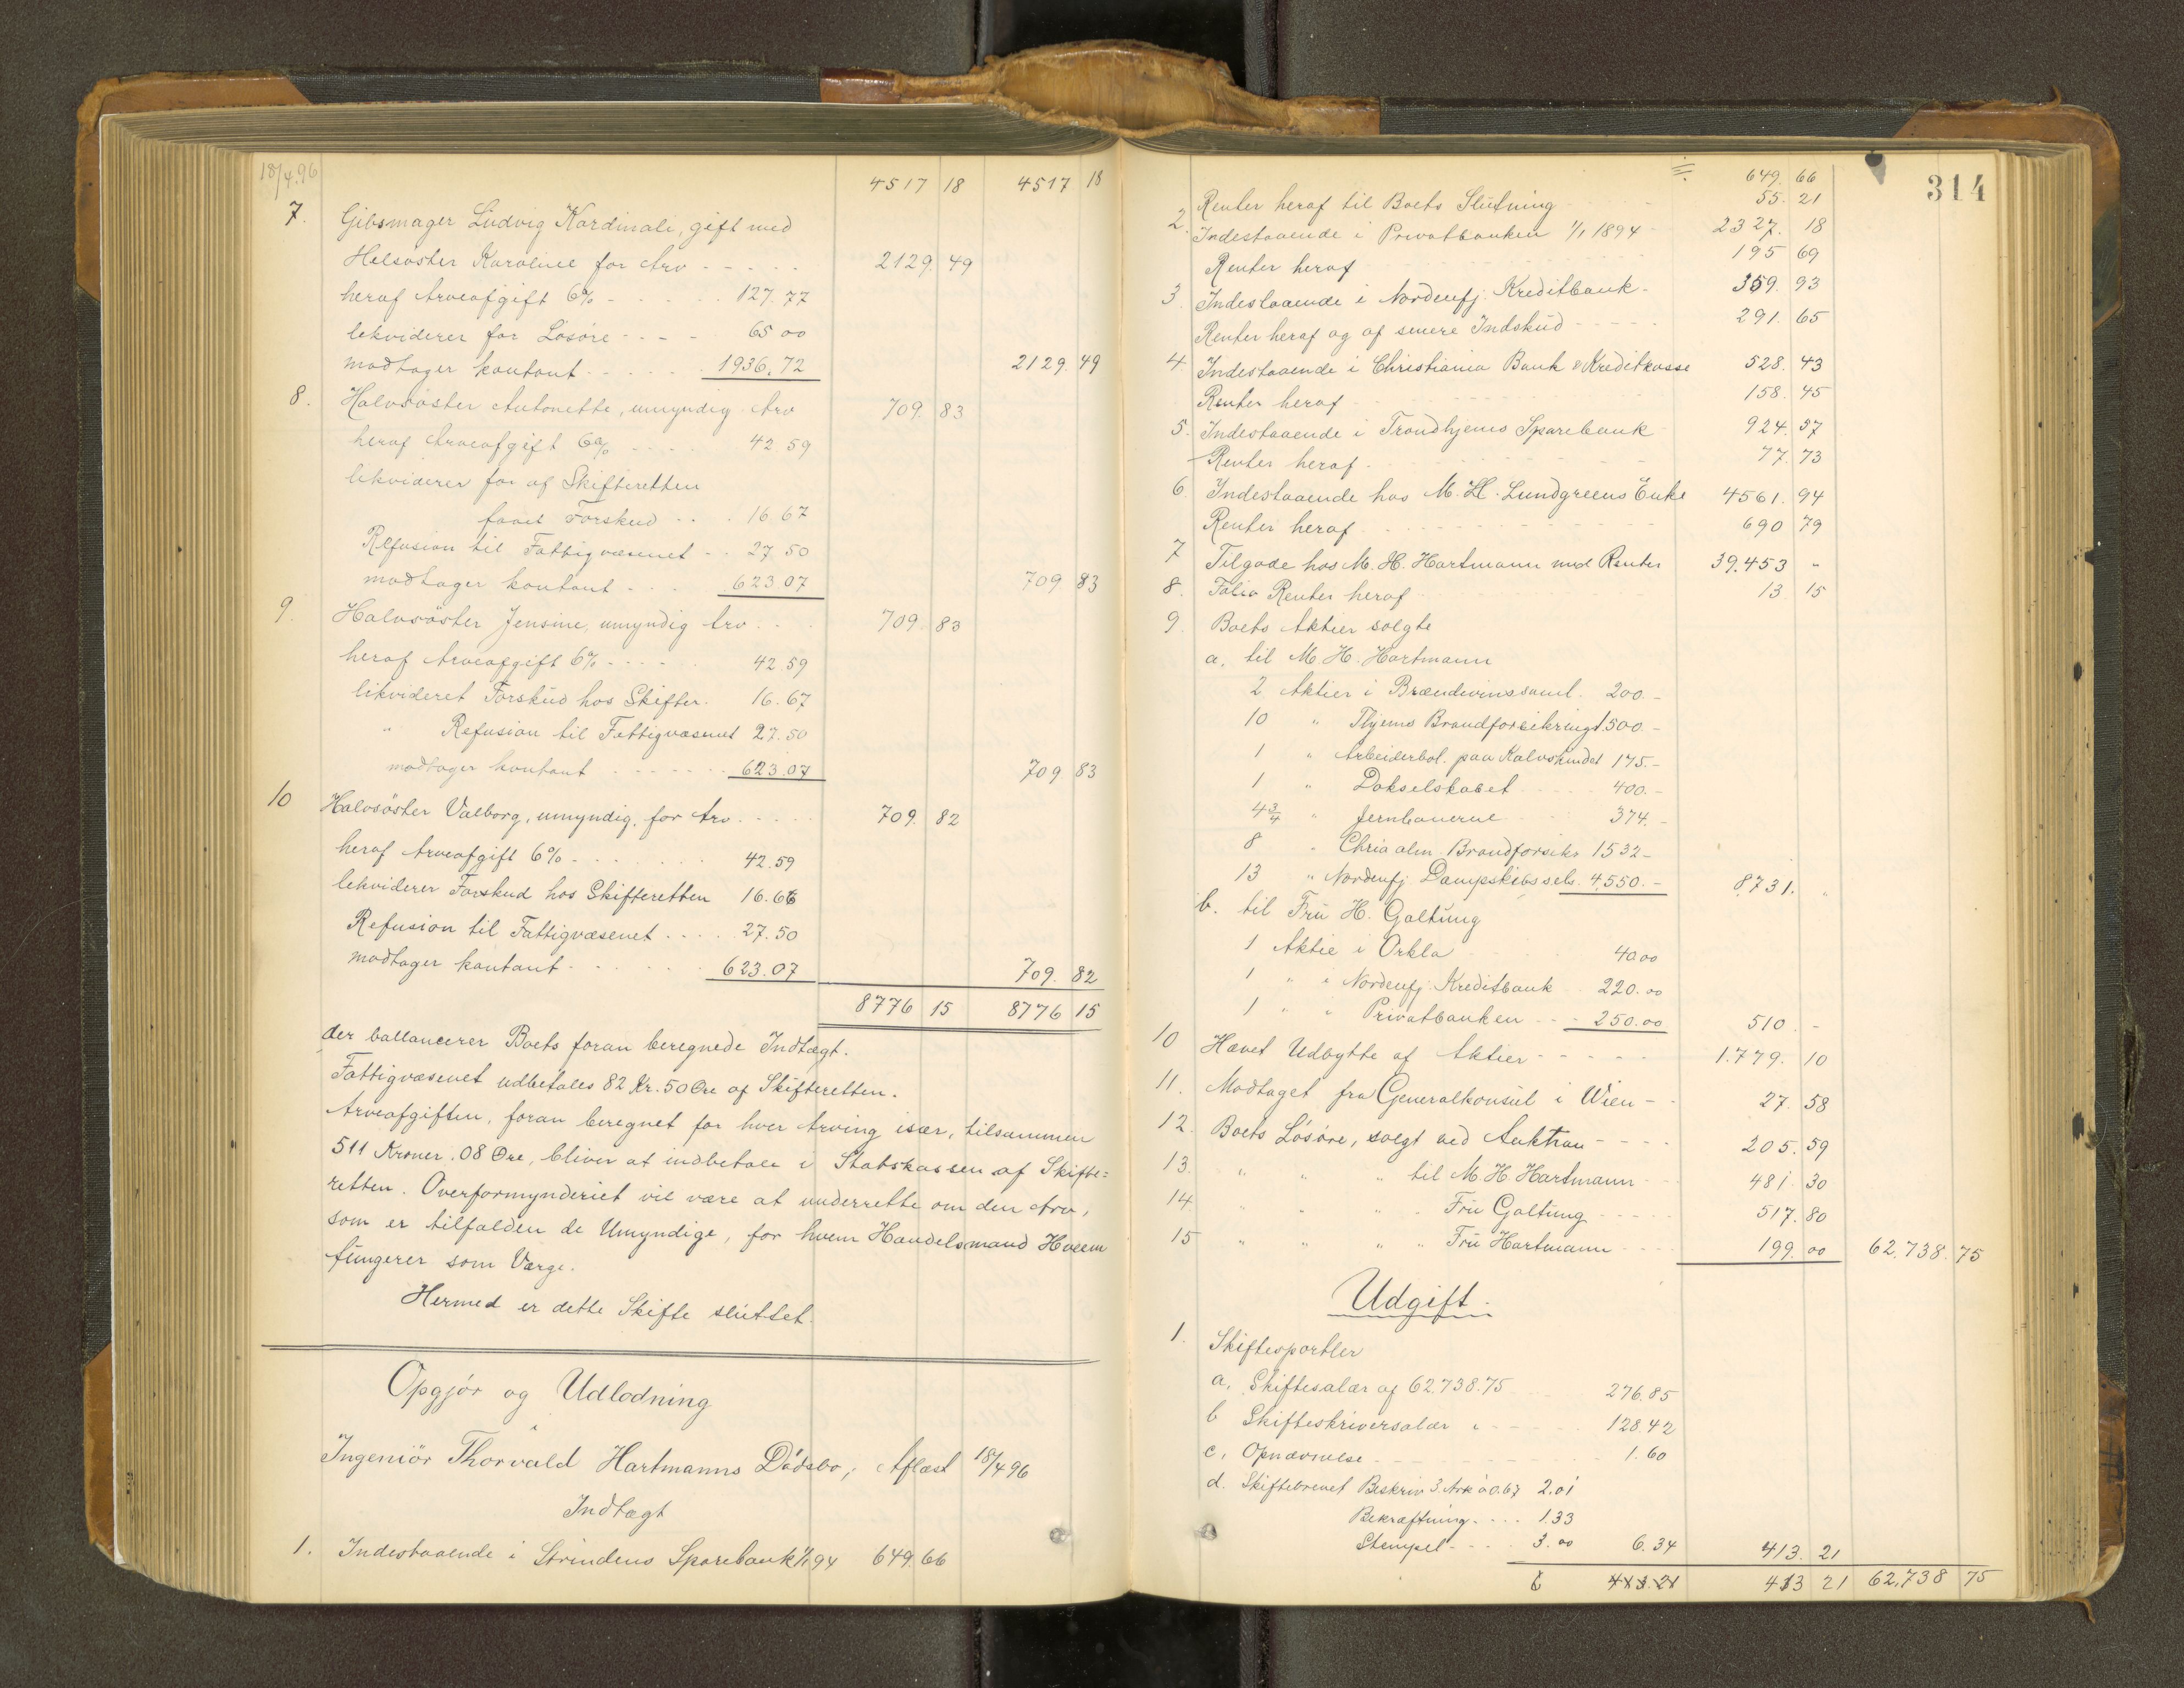 18/4.96
4517 18 4517 18
7. Gibsmager Ludvig Kardinali, gift med
Helsøster Karoline for Arv - - - - - 2129. 49
heraf Arveafgift 6% - - - - - 127.77
likviderer for Løsøre - - - - 65 00
modtager kontant - - - - - 1936.72 2129. 49
8. Halvsøster Antonette, umyndig Arv 709. 83
heraf Arveafgift 6% - - - - 42.59
likviderer for af Skifteretten
faaet Forskud - - - 16.67
Refusion til Fattigvæsenet - - 27.50
modtager kontant - - - 623 07 709 83
9. Halvsøster Jensine, umyndig Arv - - - 709 83
heraf Arveafgift 6% - - - - - 42.59
likvideret Forskud hos Skifter. 16.67
" Refusion til Fattigvæsenet 27.50
modtager kontant - - - - - - 623.07 709 83
10 Halvsøster Valborg, umyndig, for Arv - - - - - 709. 82
heraf Arveafgift 6% - - - - - - 42.59
likviderer Forskud hos Skifteretten 16.66
Refusion til Fattigvæsenet - - - - 27.50
modtager kontant - - - - - - 623.07 709. 82
8776 15 8776 15
der ballancerer Boets foran beregnede Indtægt.
Fattigvæsenet udbetales 82 Kr. 50 Øre af Skifteretten.
Arveafgiften, foran beregnet for hver Arving især, tilsammen
511 Kroner. 08 Øre, bliver at indbetale i Statskassen af Skifte=
retten. Overformynderiet vil være at underrette om den Arv,
som er tilfalden de Umyndige, for hvem Handelsmand Hveem
fungerer som Værge.
Hermed er dette Skifte sluttet.
Opgjør og Udlodning
i
Ingeniør Thorvald Hartmanns Dødsbo, Aflæst 18/4 96
Indtægt
1. Indestaaende i Strindens Sparebank 1/1 94 649.66
314
÷ 649. 66
Renter heraf til Boets Slutning 55. 21
2. Indestaaende i Privatbanken 1/1 1894 2327. 18
Renter heraf 195 69
3. Indestaaende i Nordenfj. Kreditbank - 359. 93
Renter heraf og af senere Indskud - - - - - 291. 65
4. Indestaaende i Christiania Bank & Kreditkasse 528. 43
Renter heraf 158. 45
5. Indestaaende i Trondhjems Sparebank 924. 57
Renter heraf 77. 73
6. Indestaaende hos M. H. Lundgreens Enke 4561. 94
Renter heraf 690 79
7 Tilgode hos M. H. Hartmann med Renter 39.453 -
8. Folio Renter heraf 13 15
9. Boets Aktier solgte
a. til M. H. Hartmann
2 Aktier i Brændevinssaml. 200. -
10 " Thjems Brandforsikringt 1500. -
1 " Arbeiderbol. paa Kalvskindet 175. -
1 " Dokselskabet - - - - - 400. -
4 3/4 " Jernbanerne - - - 374. -
8 " Chria alm. Brandforsikr 1532 -
13 " Nordenfj Dampskibssels. 4,550. - 8731. "
b. til Fru H. Galtung
1 Aktie i Orkla 40.00
1 " i Nordenfj. Kreditbank 220.00
1 " " Privatbanken - - - 250.00 510. -
10 Hævet Udbytte af Aktier - - - - - 1.779. 10
11. Modtaget fra Generalkonsul i Wien - - 27. 58
12. Boets Løsøre, solgt ved Auktion - - - - 205. 59
13. " " " til M H Hartmann - - - 481. 30
14. " " " " Fru Galtung - - - - - 517. 80
15 " " " " Fru Hartmann - - - - 199. 00 62.738. 75
Udgift.
1. Skiftesportler
a. Skiftesalær af 62.738.75 276.85
b Skifteskriversalær " - - - - - 128.42
c. Opnævnelse - - - - - - - 1.60
d. Skiftebrevet Beskriv 3 Ark à 0.67 2.01
Bekræftning - - - - 1.33
Stempel - - - - 3.00 6.34 413. 21
413.21 413 21 62,738 75